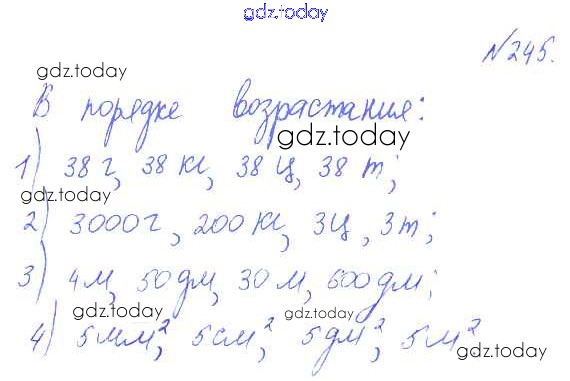 gdz.today
№245.
gdz.today
В порядке возрастания:
gdz.today
1) 38 г, 38 кг, 38 ц, 38 т;
gdz.today
2) 3000 г, 200 кг, 3 ц, 3 т;
3) 4 м, 50 дм, 30 м, 600 дм;
gdz.today gdz.today
4) 5 мм², 5 см², 5 дм², 5 м²
gdz.today